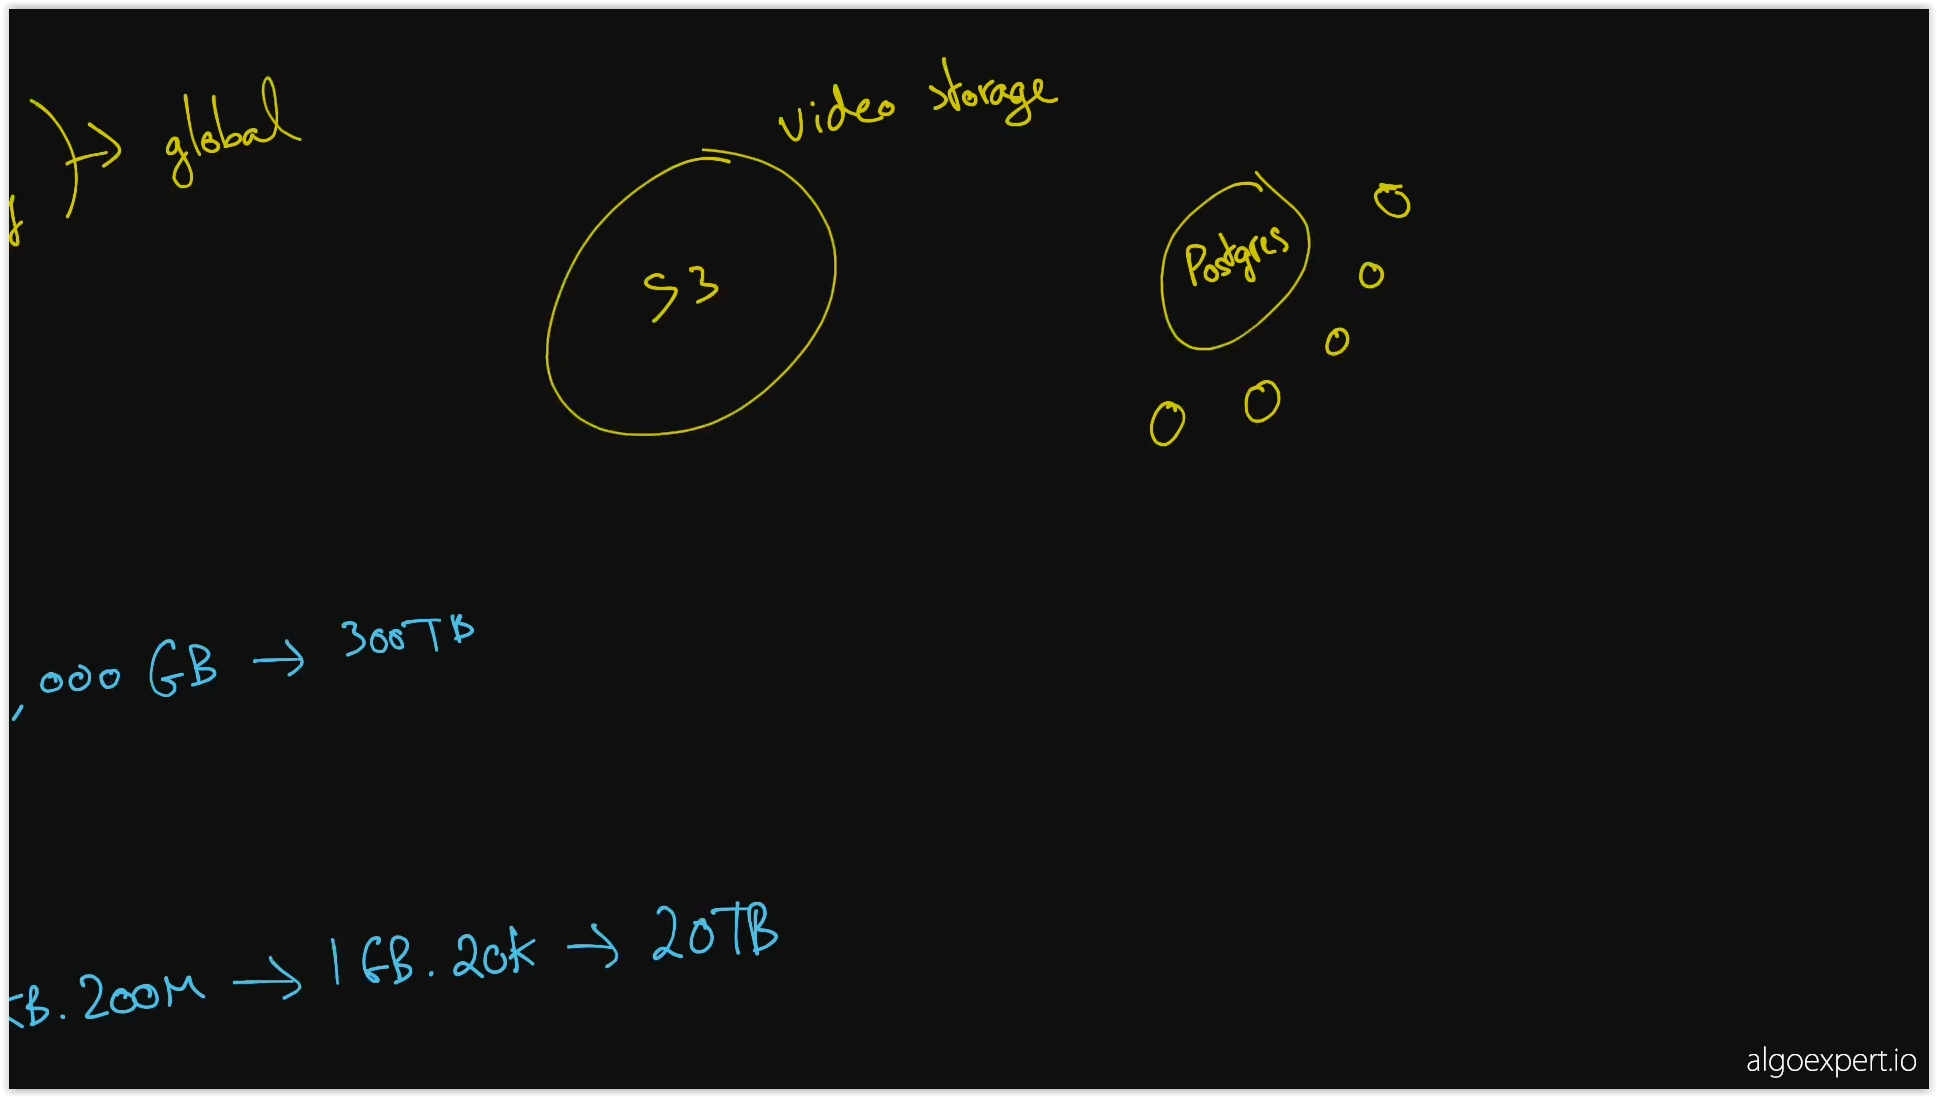 → global
video storage
S3
Postgres
,000 GB → 300TB
B. 200M → 1 GB. 20K → 20TB
algoexpert.io